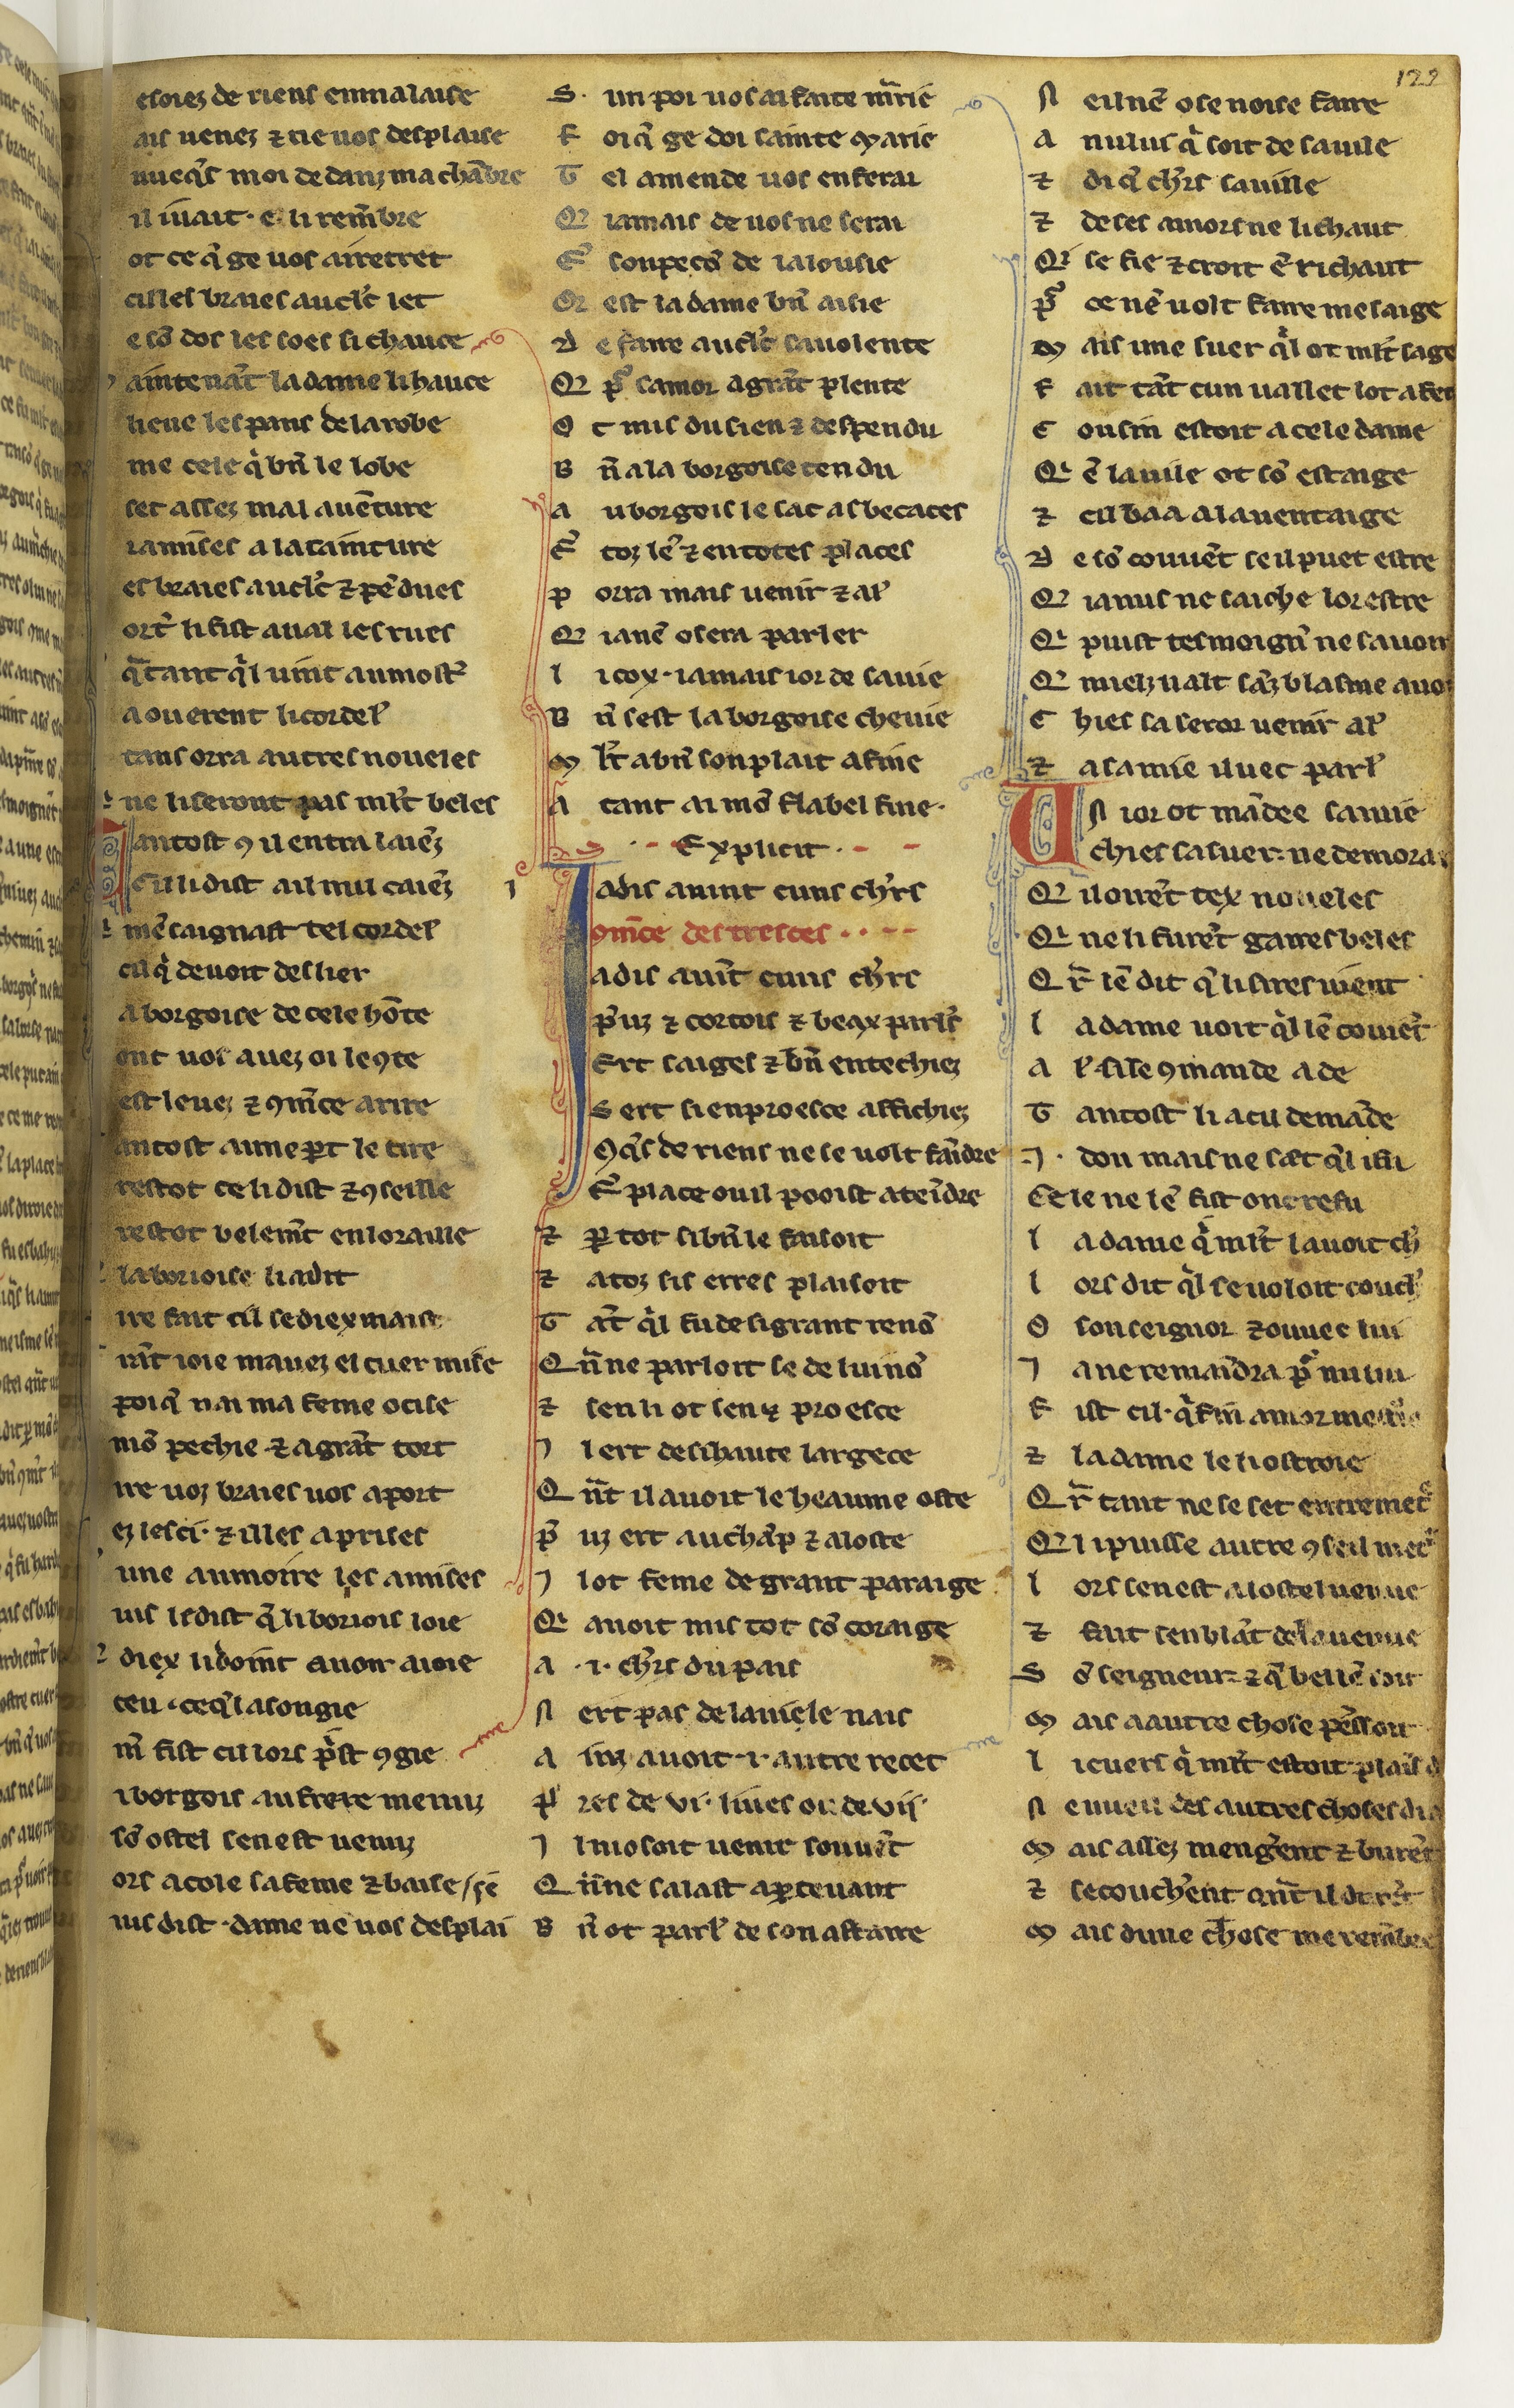 122
esoiez de riens enmalaise
ais uenez ⁊ ne uos desplaise
uueq̃s moi dedanz ma chãbre
il iuait · e li rem̃bre
ot ce q̃ ge uos ai retret
cilles braies au cl̃c let
e sõ dos les soes si chauce
aintenãt la dame li hauce
lieue les pans de la robe
me cele q̃ bñ le lobe
set assez mal auẽture
iamises a la tainture
es braies au cl̃c ⁊ pẽdues
ort̃ li fist aual les rues
q̃tant q̃l uint au most̃
aouerent li cordel̃
tans orra autres noueles
ne li seront pas ml̃t beles
Tantost ꝯ il entra laiẽz
Cil li dist ail nul caiẽz
mẽ saignast tel cordel̃
cil q̃ deuoit deslier
a borgoise de cele hõte
ont uos auez oi le ꝯte
est leuez ⁊ ꝯm̃ce a rire
antost a une pt le tire
restot ce li dist ⁊ ꝯseille
restot belem̃t en loraille
la borioise li a dit
ire fait cil se diex mait
ãt ioie mauez el cuer mise
poi q̃ nai ma feme ocise
mõ pechie ⁊ a grãt tort
ire uoz braies uos aport
ez les ci · ⁊ il les a prises
une aumoire les a mises
uis le dist q̃ li boriois ioie
diex li doint auoir a ioie
ceu · ceq̃ la songie
m̃ fist cil lors p̃st ꝯgie
i borgois au frere menuz
sõ ostel sen est uenuz
ors acole sa feme ⁊ baise /sẽ
uis dist · dame ne uos desplai
S · un poi uos ai faite m̃rie
F oi q̃ ge doi sainte marie
T el amende uos en ferai
Q iamais de uos ne serai
E soupecõ de ialousie
Or est la dame bñ aisie
D e faire au cl̃c sa uolente
Q p̃ samor a grãt plente
O t mis du sien ⁊ despendu
B ñ a la borgoise tendu
A u borgois le sac as becaces
E toz lẽ ⁊ en totes places
P orra mais uenir ⁊ al̃
Q ianẽ osera parler
L i cox · iamais ior de sa uie
B ñ sest la borgoise cheuie
M l̃t a bñ son plait afine
A tant ai mõ flabel fine ·
· - Explicit · - -
Iadis auint cuns ch̃rs
ꝯm̃ce des tresces · · - -
adis auĩt cuns ch̃rs
p̃uz ⁊ cortois ⁊ beax parl̃s
Ert saiges ⁊ bñ entechiez
S ert si en proesce affichiez
Cq̃s de riens ne se uolt faĩdre
E place ou il pooist ateĩdre
⁊ p tot si bñ le faisoit
⁊ a toz sis erres plaisoit
T ãt q̃l fu de si grant renõ
Q ñ ne parloit se de lui nõ
⁊ sen li ot sen ⁊ proesce
I l ert de si haute largece
Q ñt il auoit le heaume oste
P̃ uz ert au chãp ⁊ a loste
I l ot feme de grant paraige
Q auoit mis tot sõ coraige
A · i · ch̃rs du pais
N ert pas de la uiele nais
A inz auoit · i · autre recet
P̃ res de vi · liues ou de vij ·
I l ni osoit uenir souuẽt
Q ñ ne salast apceuant
B ñ ot parl̃ de son affaire
N eil nẽ ose noise faire
A nului q̃ soit de sa uile
⁊ di q̃ ch̃rs sauille
⁊ de ses amors ne li chaut
Q se fie ⁊ croit ẽ richaut
P̃ ce nẽ uolt faire mesaige
M ais une suer q̃l ot ml̃t sage
F ait tãt cun uallet lot a fem
C ousin estoit a cele dame
Q ẽ la uile ot sõ estaige
⁊ cil baa a lauentaige
D e sõ couuẽt se il puet estre
Q ia nus ne saiche lor estre
Q puist tesmoign̄ ne sauoir
Q mielz ualt sãz blasme auoi
C hies sa seror uenir al̃
⁊ a sa mie iluec parl̃
Un ior ot mãdee samie
chies sa suer · ne demora
Q il ouẽt tex noueles
Q ne li furẽt gaires beles
Q r̃ lẽ dit q̃ li sires uient
L a dame uoit q̃l lẽ couiẽt
A l̃ · sil se ꝯmande a de
T antost li a cil demãde
.I. don mais ne set q̃l i fu
Cele ne lẽ fist onc refu
L a dame q̃ ml̃t lauoit ch̃
L ors dit q̃l se uoloit couch̃
O son seignor ⁊ ouuec lui
I a ne remaĩdra p̃ nului
F ist cil · q̃ fin amor mestrie
⁊ la dame le li ostroie
Q r̃ tant ne se set entremet̃
Q li puisse autre ꝯseil met̃
L ors sen est a lostel uenue
⁊ fait senblãt de la uenue
S õ seigneur · ⁊ q̃ bel lẽ soit
M ais a autre chose pẽssoit
L i cuers q̃ ml̃t estoit plaĩs d
N enuen des autres choses di
M ais assez mengẽnt ⁊ burẽt
⁊ se couchẽnt qñt il dorẽt
M ais dune chose me remẽbre